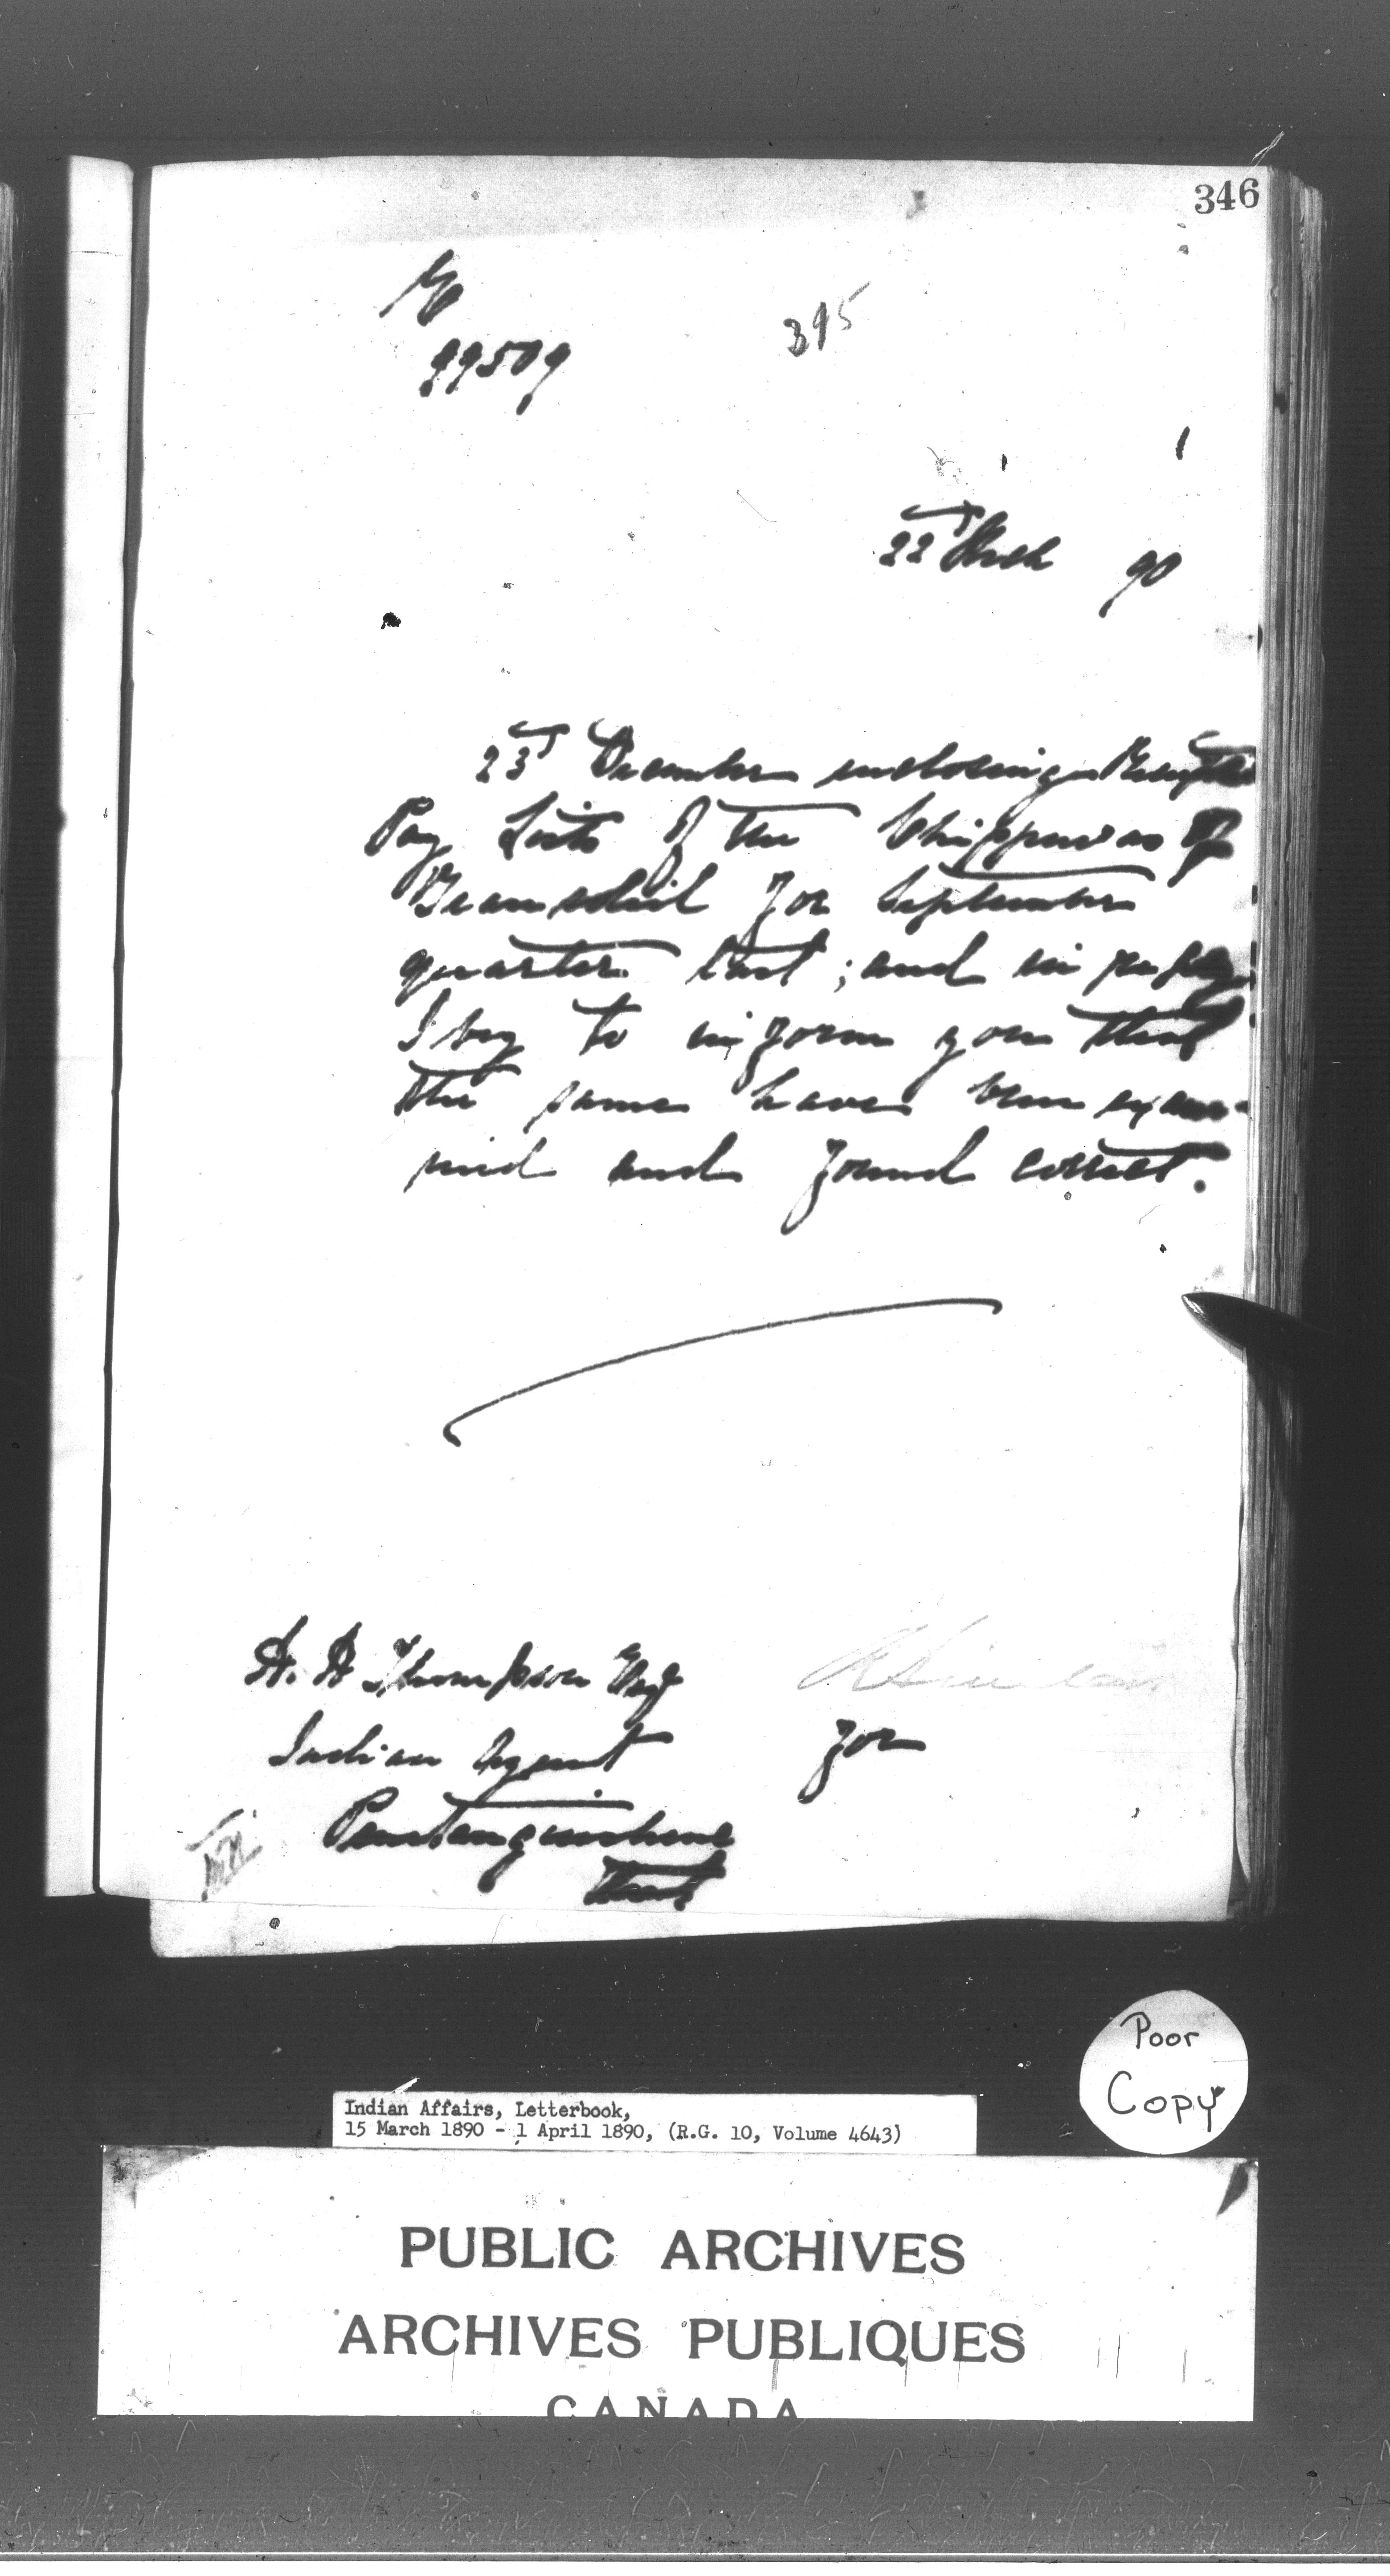 346
395
99509
22 Mch 90
23 December enclosing Receipted
Pay Lists of the Chippewas of
Beausoleil for September
quarter last; and in reply
I beg to inform you that
the same have been exam-
ined and found correct.
H. H. Thompson Esq
R Sinclair
Indian Agent for
Penetanguishene
Ont
Poor
Copy
Indian Affairs, Letterbook,
15 March 1890 - 1 April 1890, (R.G. 10, Volume 4643)
PUBLIC ARCHIVES
ARCHIVES PUBLIQUES
CANADA